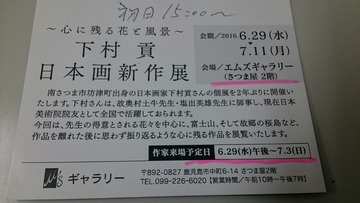 初日15:00〜
〜心に残る花と風景〜
下村 貢
日本画新作展
会期/2016.6.29(水)
〜
7.11(月)
会場/エムズギャラリー
(さつま屋 2階)
南さつま市坊津町出身の日本画家下村貢さんの個展を2年ぶりに開催い
たします。下村さんは、故奥村土牛先生・塩出英雄先生に師事し、現在日本
美術院院友として全国で活躍しておられます。
今回は、先生の得意とされる花々を中心に、富士山、そして故郷の桜島など、
作品を離れた後に思わず振り返るような心に残る作品を展覧いたします。
作家来場予定日 6.29(水)午後〜7.3(日)
M's ギャラリー
〒892-0827 鹿児島市中町6-14 さつま屋2階
TEL.099-226-6020【営業時間/午前10時〜午後7時】